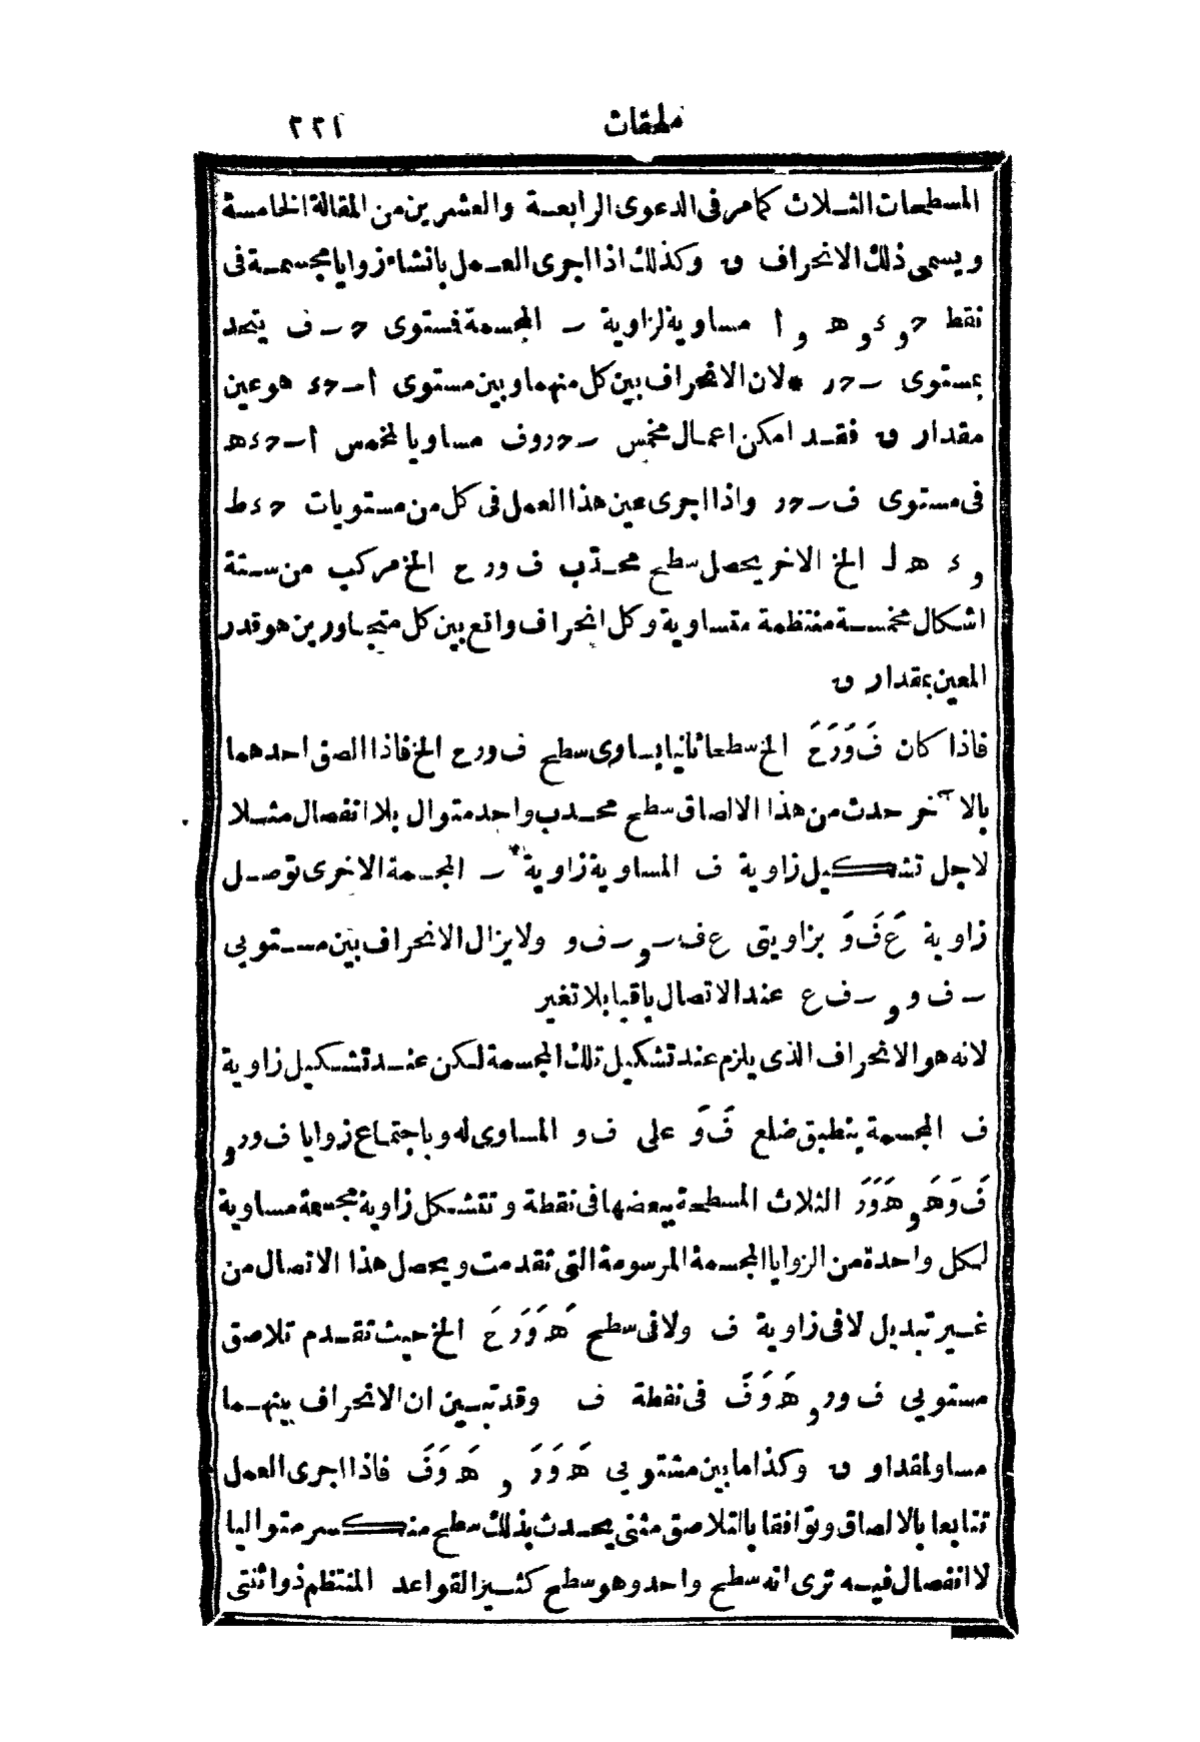 ملحقات ٢٢١
المسطحات الثلاث كما مر فى الدعوى الرابعة والعشرين من المقالة الخامسة
ويسمى ذلك الانحراف ں وكذلك اذا اجرى العمل بانشاء زوايا مجسمة فى
نقط ح و ء و ه و ا مساوية لزاوية ٮ المجسمة فستوى ح ٮ ف يتحد
بمستوى ٮ ح ر * لان الانحراف بين كل منهما وبين مستوى ا ٮ ح ء هو عين
مقدار ں فقد امكن اعمال مخمس ٮ ح ر و ف مساويا لمخمس ا ٮ ح ء ه
فى مستوى ف ٮ ح ر واذا اجرى عين هذا العمل فى كل من مستويات ح ء ط
و ء ه ل الخ الاخر يحصل سطح محدب ف و ر ح الخ مركب من ستة
اشكال مخمسة منتظمة متساوية وكل انحراف واقع بين كل متجاورين هو قدر
المعين بمقدار ں
فاذا كان فَ وَ رَ حَ الخ سطحا ثانيا يساوى سطح ف و ر ح الخ فاذا الصق احدهما
بالآخر حدث من هذا الالصاق سطح محدب واحد متوال بلا انفصال مثلا
لاجل تشكيل زاوية ف المساوية زاوية ٮ المجسمة الاخرى توصل
زاوية عَ فَ وَ بزاويتى ع ف ٮ و ٮ ف و ولا يزال الانحراف بين مستويى
ٮ ف و و ٮ ف ع عند الاتصال باقيا بلا تغير
لانه هو الانحراف الذى يلزم عند تشكيل تلك المجسمة لكن عند تشكيل زاوية
ف المجسمة ينطبق ضلع فَ وَ على ف و المساوى له وباجتماع زوايا ف و ر و
فَ وَ هَ و هَ وَ رَ الثلاث المسطحة ببعضها فى نقطة و تتشكل زاوية مجسمة مساوية
لكل واحدة من الزوايا المجسمة المرسومة التى تقدمت ويحصل هذا الاتصال من
غير تبديل لا فى زاوية ف ولا فى سطح هَ وَ رَ حَ الخ حيث تقدم تلاصق
مستويى ف و ر و هَ وَ فَ فى نقطة ف وقد تبين ان الانحراف بينهما
مساو لمقدار ں وكذا ما بين مستويى هَ وَ رَ و هَ وَ فَ فاذا اجرى العمل
تتابعا بالالصاق وتوافقا بالتلاصق مثنى يحدث بذلك سطح منكسر متواليا
لا انفصال فيه ترى انه سطح واحد وهو سطح كثير القواعد المنتظم ذو اثنتى